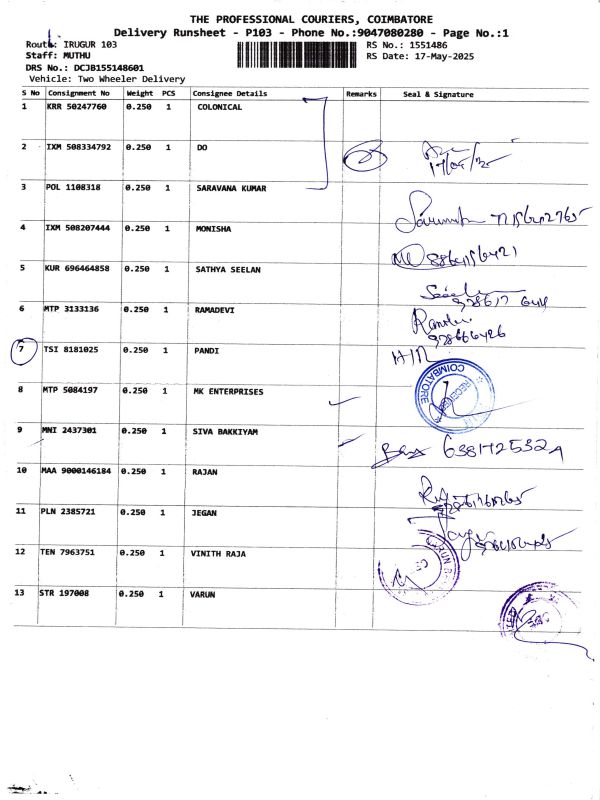 THE PROFESSIONAL COURIERS, COIMBATORE
Delivery Runsheet - P103 - Phone No.:9047080280 - Page No.:1
Route: IRUGUR 103
RS No.: 1551486
Staff: MUTHU
RS Date: 17-May-2025
DRS No.: DCJB155148601
Vehicle: Two Wheeler Delivery
S No Consignment No Weight PCS Consignee Details Remarks Seal & Signature
1 KRR 50247760 0.250 1 COLONICAL
2 IXM 508334792 0.250 1 DO
3 POL 1108318 0.250 1 SARAVANA KUMAR
4 IXM 508207444 0.250 1 MONISHA
5 KUR 696464858 0.250 1 SATHYA SEELAN
6 MTP 3133136 0.250 1 RAMADEVI
7 TSI 8181025 0.250 1 PANDI
8 MTP 5084197 0.250 1 MK ENTERPRISES
COIMBATORE
RECEIVED
9 MNI 2437301 0.250 1 SIVA BAKKIYAM
10 MAA 9000146184 0.250 1 RAJAN
11 PLN 2385721 0.250 1 JEGAN
12 TEN 7963751 0.250 1 VINITH RAJA
13 STR 197008 0.250 1 VARUN